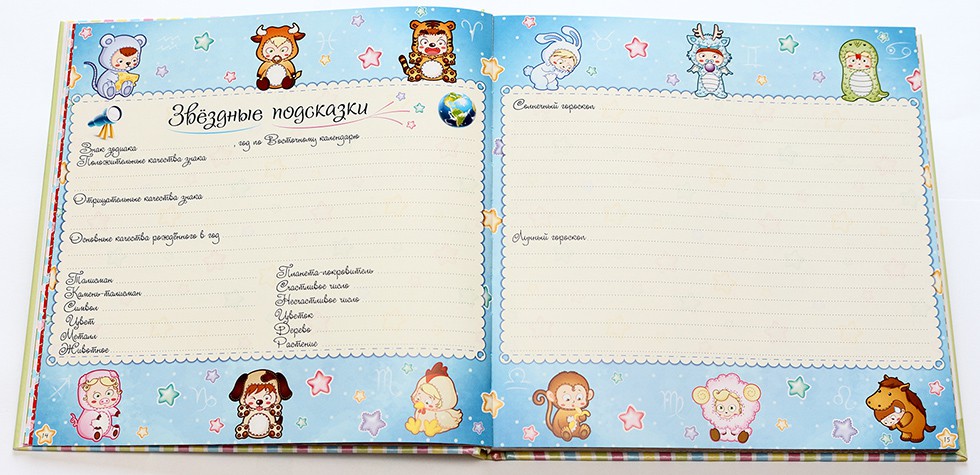 Звёздные подсказки
Знак зодиака , год по Восточному календарю
Положительные качества знака
Отрицательные качества знака
Основные качества рождённого в год
Талисман
Камень-талисман
Символ
Цвет
Металл
Животное
Планета-покровитель
Счастливое число
Несчастливое число
Цветок
Дерево
Растение
14
Солнечный гороскоп
Лунный гороскоп
15